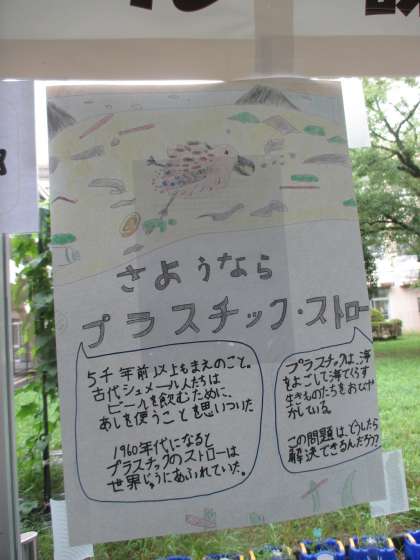 さようなら
プラスチック・ストロー
5千年前以上もまえのこと。
古代シュメール人たちは
ビールを飲むために、
あしを使うことを思いついた
1960年代になると
プラスチックのストローは
世界じゅうにあふれていた。
プラスチックは、海
をよごして海でくらす
生きものたちをおびや
かしている。
この問題は、どうしたら
解決できるんだろう??